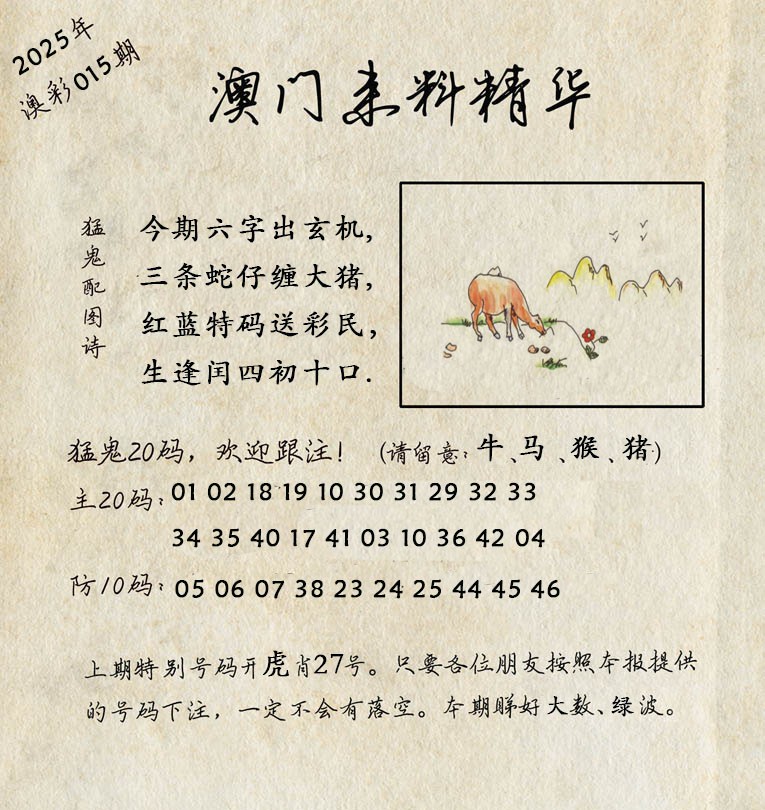 2025年
澳彩015期
澳门来料精华
猛鬼配图诗
今期六字出玄机,
三条蛇仔缠大猪,
红蓝特码送彩民,
生逢闰四初十口.
猛鬼20码，欢迎跟注！（请留意：牛、马、猴、猪）
主20码：01 02 18 19 10 30 31 29 32 33
34 35 40 17 41 03 10 36 42 04
防10码：05 06 07 38 23 24 25 44 45 46
上期特别号码开虎肖27号。只要各位朋友按照本报提供
的号码下注，一定不会有落空。本期睇好大数、绿波。